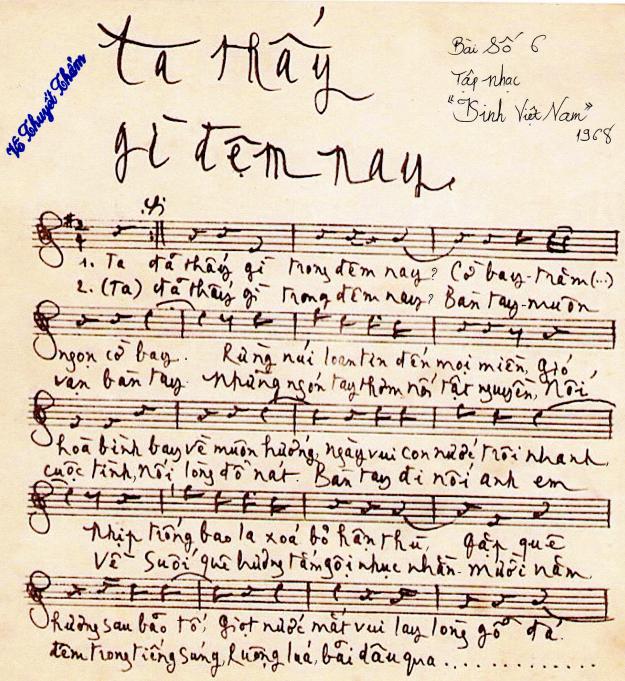 Vũ Thuyết Thảm
Ta thấy
gì đêm nay
Bài Số 6
Tập nhạc
"Kinh Việt Nam"
1968
2
4
1. Ta đã thấy gì trong đêm nay? Cờ bay trăm (...)
2. (Ta) đã thấy gì trong đêm nay? Bàn tay muôn
ngọn cờ bay. Rừng núi loan tin đến mọi miền, Gió
vạn bàn tay. Những ngón tay thơm nối tật nguyền, Nối
hoà bình bay về muôn hướng, ngày vui con nước trôi nhanh,
cuộc tình, nối lòng đổ nát. Bàn tay đi nối anh em
Nhịp trống bao la xoá bỏ hận thù, gặp quê
Về suối quê hương tắm gội nhục nhằn. mười năm
hương sau bão tố, giọt nước mắt vui lay lòng gỗ đá.
đêm trong tiếng súng, Ruộng lúa, bãi dâu qua ..............